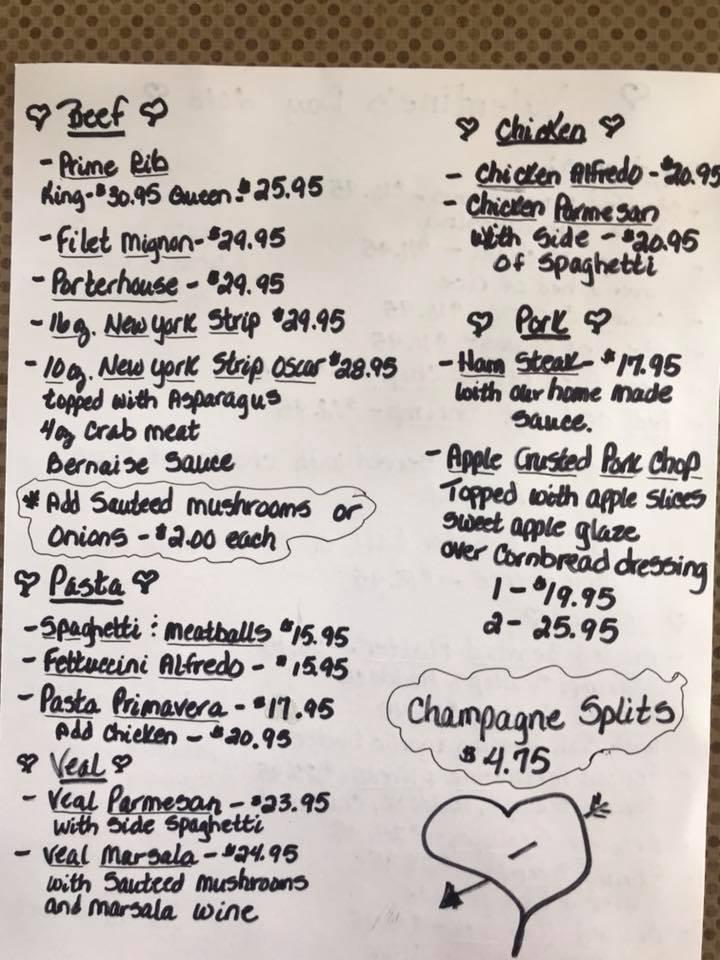 ♡ Beef ♡
- Prime Rib
King-$30.95 Queen-$25.95
- Filet Mignon-$29.95
- Porterhouse - $29.95
- 16oz. New York Strip $29.95
- 10oz. New York Strip Oscar $28.95
topped with Asparagus
4oz Crab meat
Bernaise Sauce
* Add Sauteed mushrooms or
Onions - $2.00 each
♡ Pasta ♡
- Spaghetti : Meatballs $15.95
- Fettuccini Alfredo - $15.95
- Pasta Primavera - $17.95
Add Chicken - $20.95
♡ Veal ♡
- Veal Parmesan - $23.95
with side Spaghetti
- Veal Marsala - $24.95
with Sauteed Mushrooms
and marsala wine
♡ Chicken ♡
- Chicken Alfredo - $20.95
- Chicken Parmesan
with side - $20.95
of spaghetti
♡ Pork ♡
- Ham Steak - $17.95
with our home made
sauce.
- Apple Crusted Pork Chop
Topped with apple slices
sweet apple glaze
over Cornbread dressing
1 - $19.95
2 - 25.95
Champagne Splits
$4.75